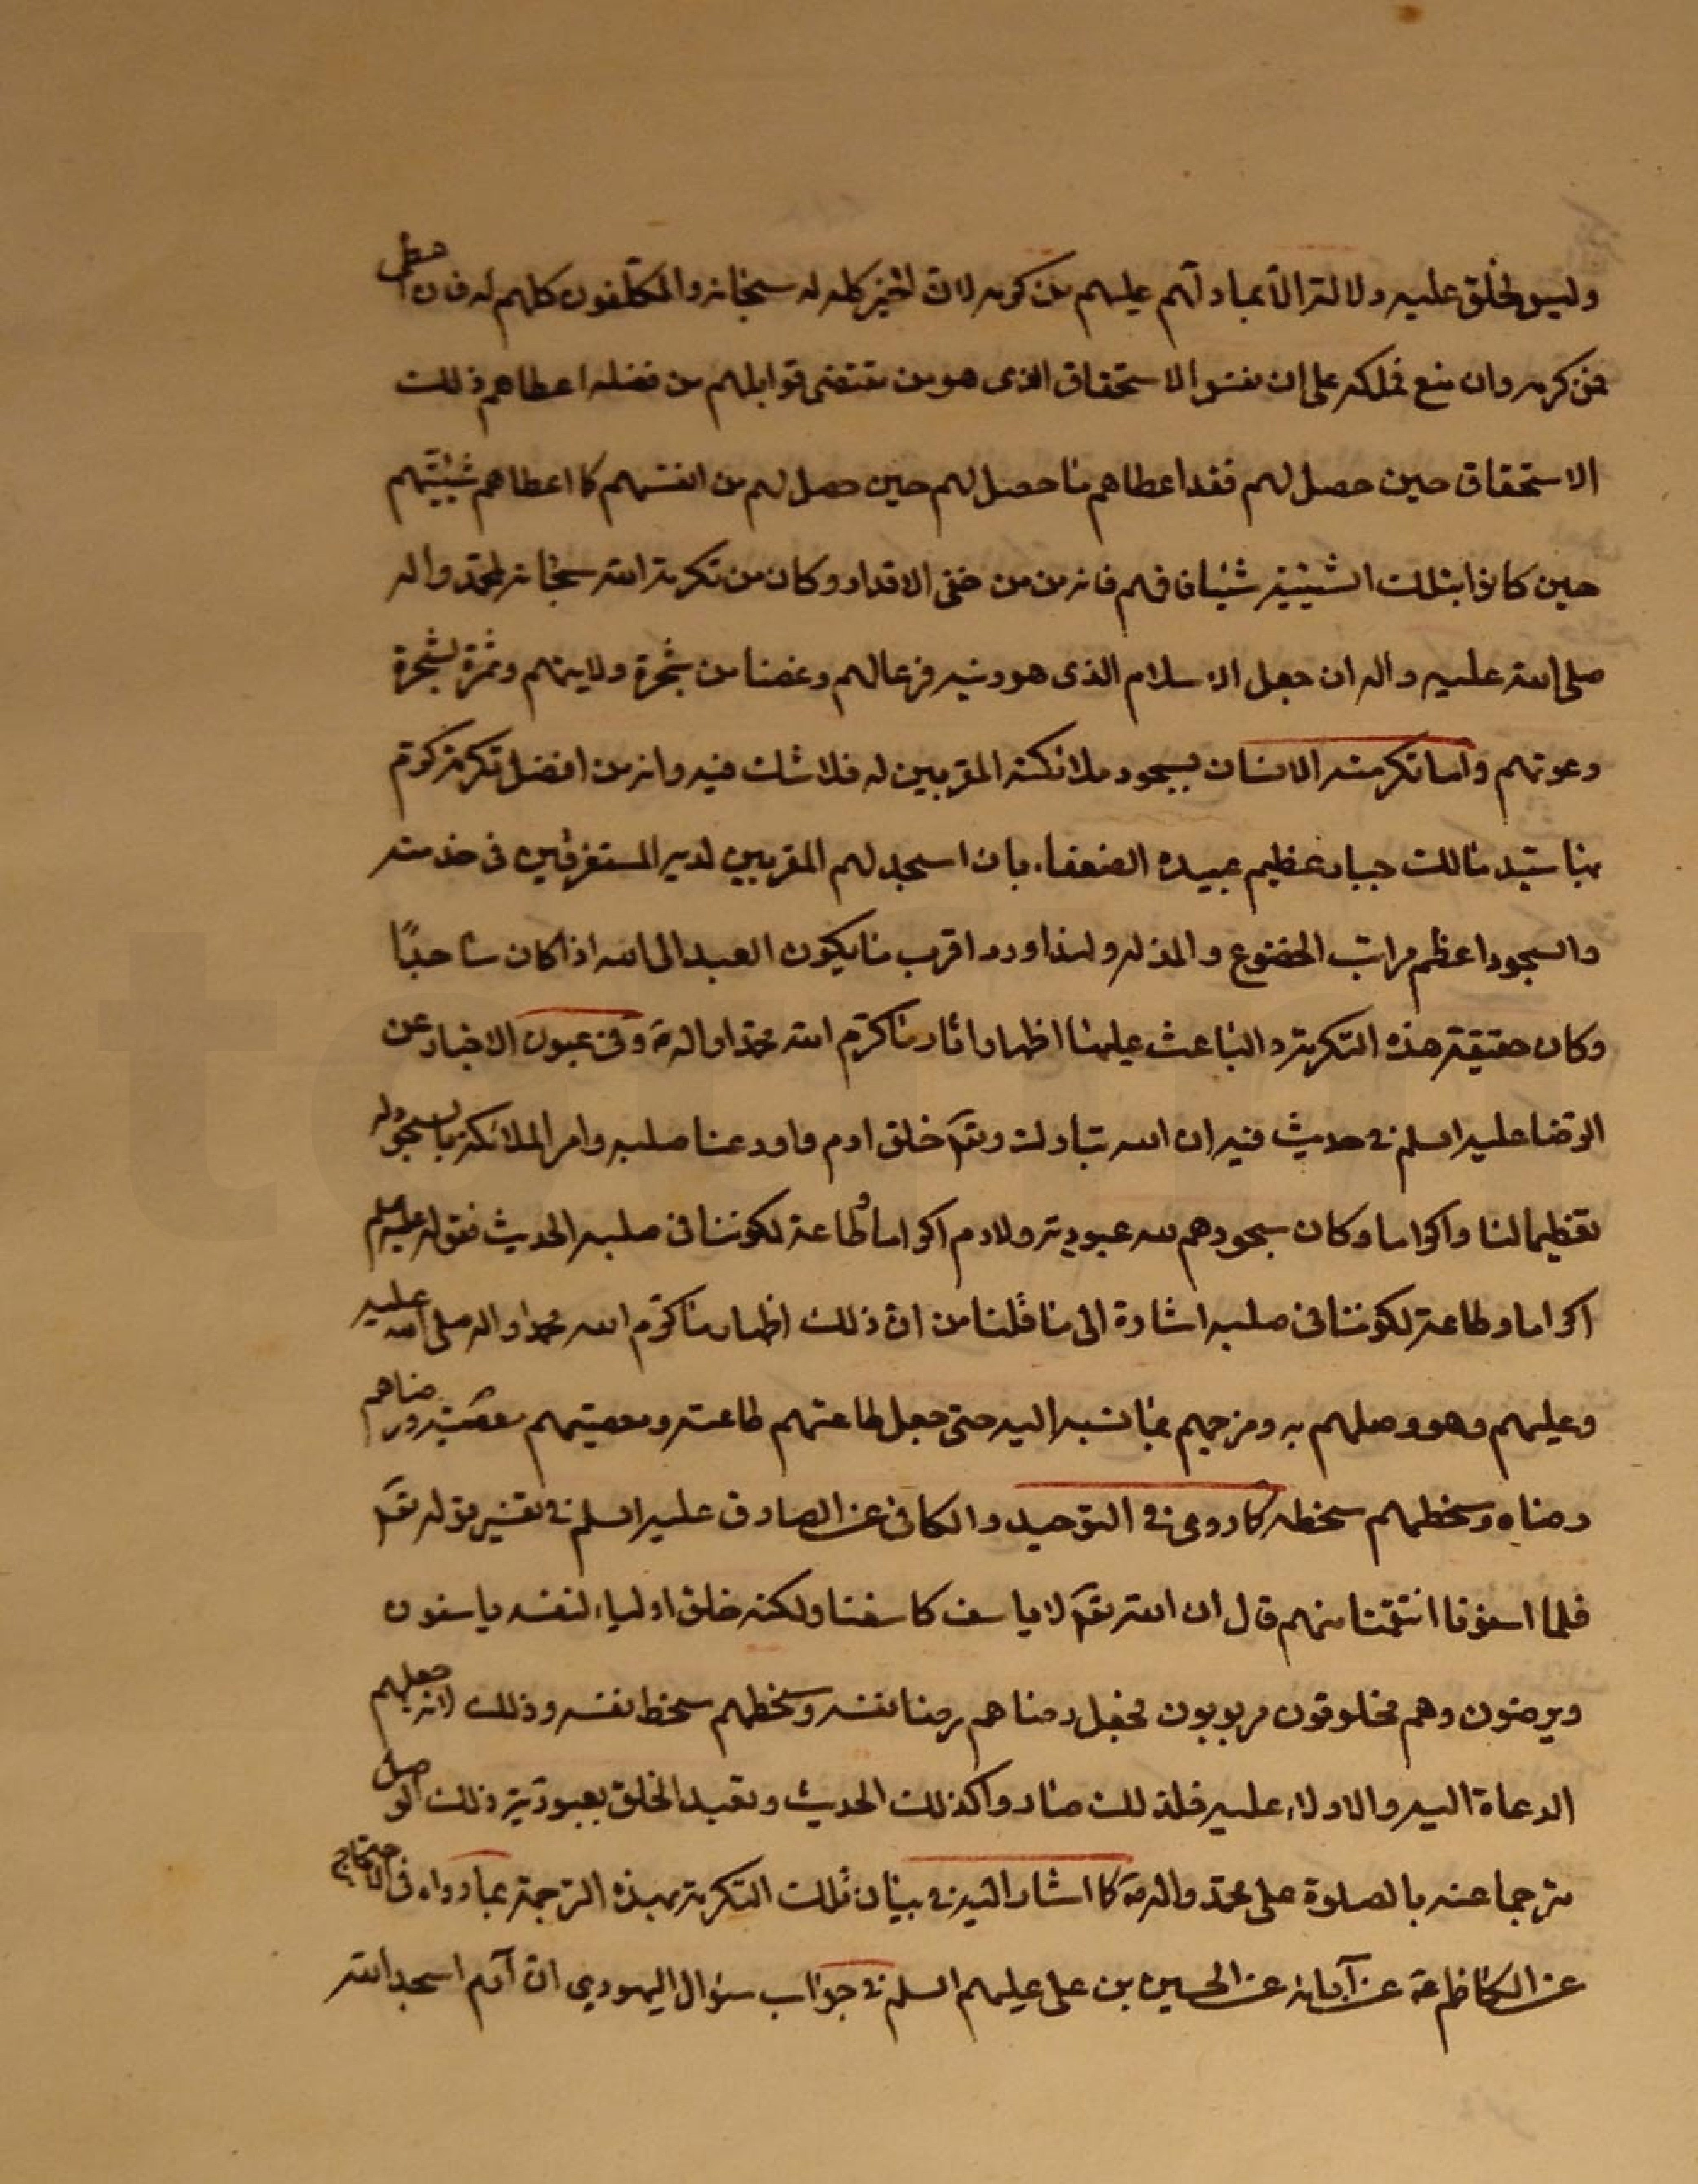 وليس لخلق عليه دلالة الا بما دلهم عليهم من كرمه لان الخير كله له سبحانه والمكلفون كلهم له فان اعطى
فمن كرمه وان منع فملكه على ان نفس الاستحقاق الذى هو من مقتضى قوابلهم من فضله اعطاهم ذلك
الاستحقاق حين حصل لهم فقد اعطاهم ما حصل لهم حين حصل لهم من انفسهم كما اعطاهم شيئيتهم
حين كانوا بتلك الشيئية شيئا فافهم فانه من من خفى الاقدار وكان من تكرمة الله سبحانه لمحمد واله
صلى الله عليه واله ان جعل الاسلام الذى هو دينه فرعا لهم وغصنا من شجرة ولايتهم وثمرة لشجرة
دعوتهم واما تكرمته الانسان بسجود ملائكته المقربين له فلا شك فيه وانه من افضل تكرمة كرم
بها سيد مالك جبار عظيم عبيده الضعفاء بان اسجد لهم المقربين لديه المستغرقين فى خدمته
والسجود اعظم مراتب الخضوع والمذلة ولهذا ورد اقرب ما يكون العبد الى الله اذا كان ساجدًا
وكان حقيقة هذه التكرمة والباعث عليها اظهار اثار ما كرم الله محمدا واله ص وفى عيون الاخبار عن
الرضا عليه السلم فى حديث فيه ان الله تبارك وتعالى خلق ادم فاودعنا صلبه وامر الملائكة بالسجود له
تعظيما لنا واكراما وكان سجودهم لله عبودية ولادم اكراما وطاعة لكوننا فى صلبه الحديث فقوله عليه السلم
اكراما وطاعة لكوننا فى صلبه اشارة الى ما قلنا من ان ذلك اظهار ما كرم الله محمدا واله صلى الله عليه
وعليهم وهو وصلهم به ومزجهم بما نسبه اليه حتى جعل طاعتهم طاعته ومعصيتهم معصيته ورضاهم
رضاه وسخطهم سخطه كما روى فى التوحيد والكافى عن الصادق عليه السلم فى تفسير قوله تعالى
فلما اسفونا انتقمنا منهم قال ان الله تعالى لا ياسف كاسفنا ولكنه خلق اولياء لنفسه ياسفون
ويرضون وهم مخلوقون مربوبون فجعل رضاهم رضا نفسه وسخطهم سخط نفسه وذلك لانه جعلهم
الدعاة اليه والادلاء عليه فلذلك صاروا كذلك الحديث وتعبد الخلق بعبودية ذلك الوصل
مترجما عنه بالصلوة على محمد واله ص كما اشار اليه فى بيان تلك التكرمة بهذه الترجمة بما رواه فى الاحتجاج
عن الكاظم ع عن آبائه عن الحسين بن على عليهم السلم فى جواب سؤال اليهودى ان آدم اسجد الله